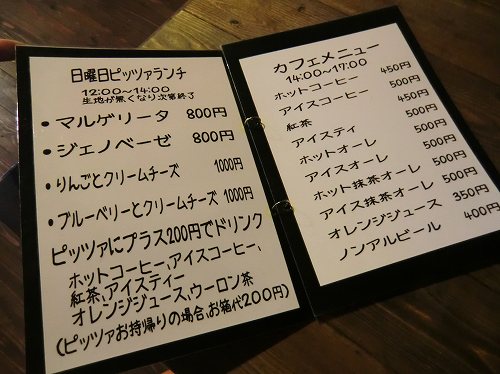 日曜日ピッツァランチ
12:00〜14:00
生地が無くなり次第終了
・マルゲリータ 800円
・ジェノベーゼ 800円
・りんごとクリームチーズ 1000円
・ブルーベリーとクリームチーズ 1000円
ピッツァにプラス200円でドリンク
ホットコーヒー、アイスコーヒー、
紅茶、アイスティー
オレンジジュース、ウーロン茶
(ピッツァお持帰りの場合、お箱代200円)
カフェメニュー
14:00〜17:00
ホットコーヒー 450円
アイスコーヒー 500円
紅茶 450円
アイスティ 500円
ホットオーレ 500円
アイスオーレ 500円
ホット抹茶オーレ 500円
アイス抹茶オーレ 500円
オレンジジュース 350円
ノンアルビール 400円